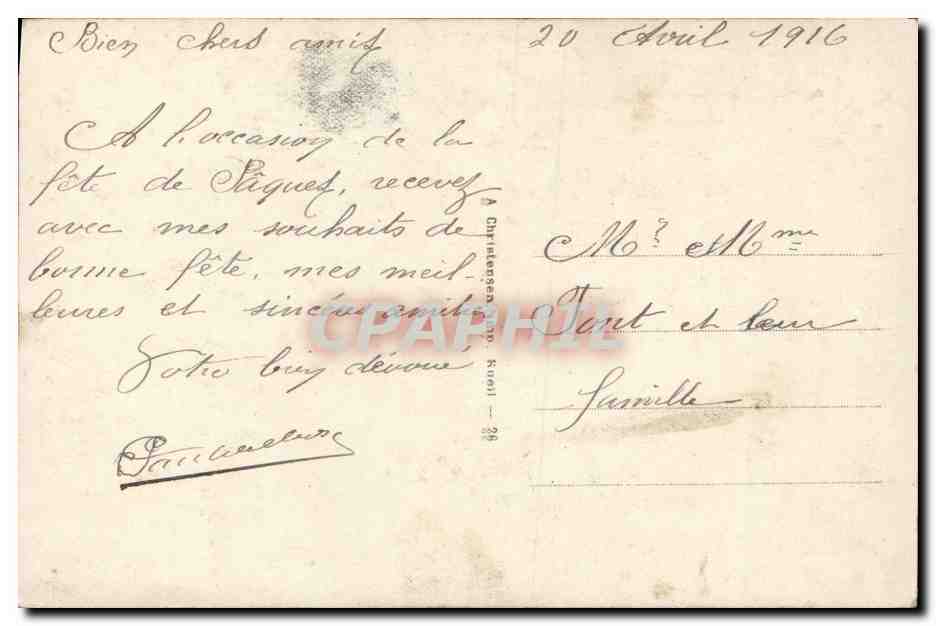 Bien chers amis
20 Avril 1916
A l'occasion de la
fête de Pâques, recevez
avec mes souhaits de
bonne fête, mes meil-
leures et sincères amitiés
Votre bien dévoué
A Christensen Imp. Rueil — 26
Mr Mme
Tont et leur
famille
CPAPHIL